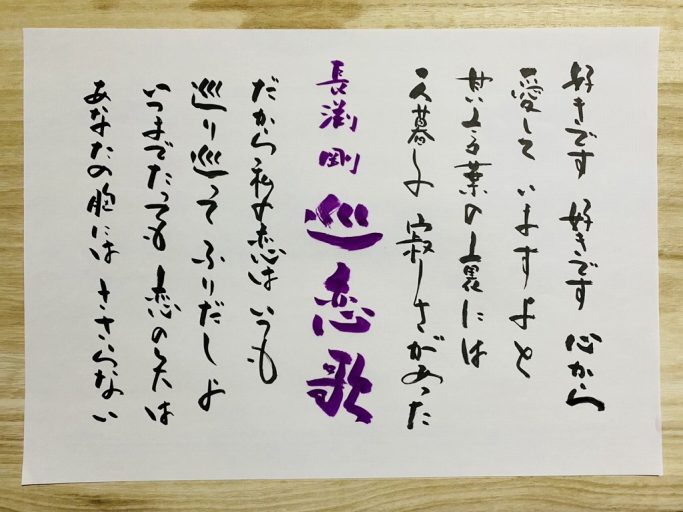 好きです 好きです 心から
愛して いますよと
甘い言葉の裏には
一人暮しの 寂しさがあった
長渕剛 巡恋歌
だから私の恋は いつも
巡り巡って ふりだしよ
いつまでたっても 恋の矢は
あなたの胸には ささらない